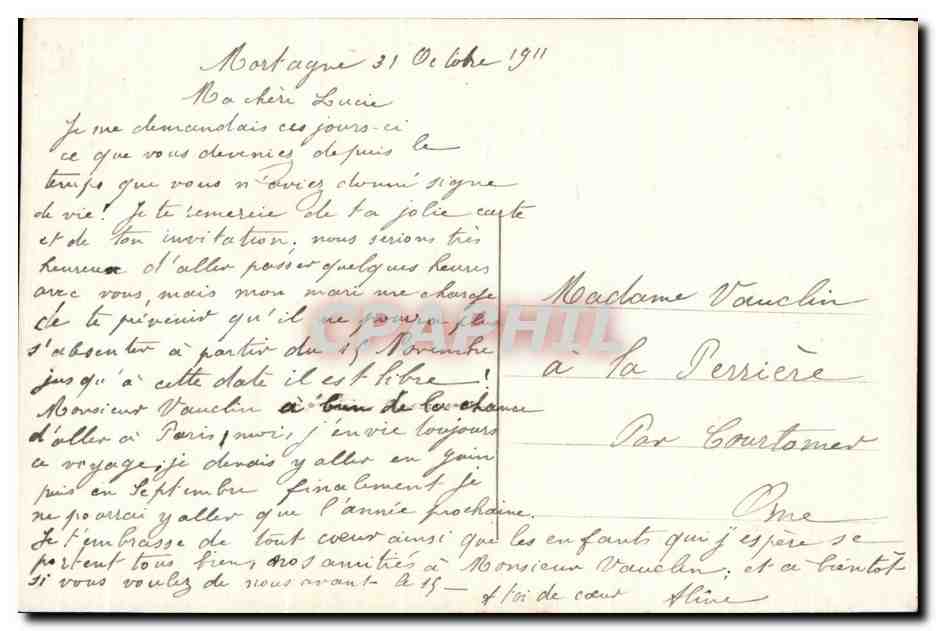 Mortagne 31 Octobre 1911
Ma chère Lucie
Je me demandais ces jours-ci
ce que vous deveniez depuis le
temps que vous n'aviez donné signe
de vie! Je te remercie de ta jolie carte
et de ton invitation, nous serions très
heureux d'aller passer quelques heures
avec vous, mais mon mari me charge
de te prévenir qu'il ne pourra plus
s'absenter à partir du 15 Novembre
jusqu'à cette date il est libre!
Monsieur Vauclin a bien de la chance
d'aller à Paris, moi, j'envie toujours
ce voyage; je devais y aller en juin
puis en Septembre finalement je
ne pourrai y aller que l'année prochaine.
Je t'embrasse de tout cœur ainsi que les enfants qui j'espère se
portent tous bien, nos amitiés à Monsieur Vauclin, et à bientôt
si vous voulez de nous avant le 15 –
A toi de cœur Aline
Madame Vauclin
à la Perrière
Par Courtomer
Orne
CPAPHIL